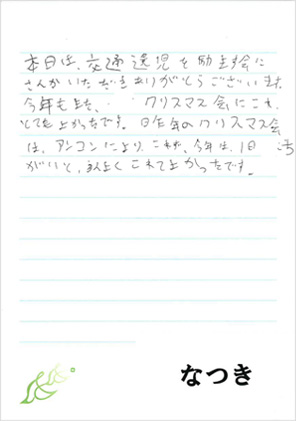 本日は、交通遺児を励ます会に
さんかいただきありがとうございます
今年もまた、 クリスマス会にこれ、
とてもよかったです。昨年のクリスマス会
は、 により、これず、今年は、1日
がいと、 よく これてよかったです。
なつき